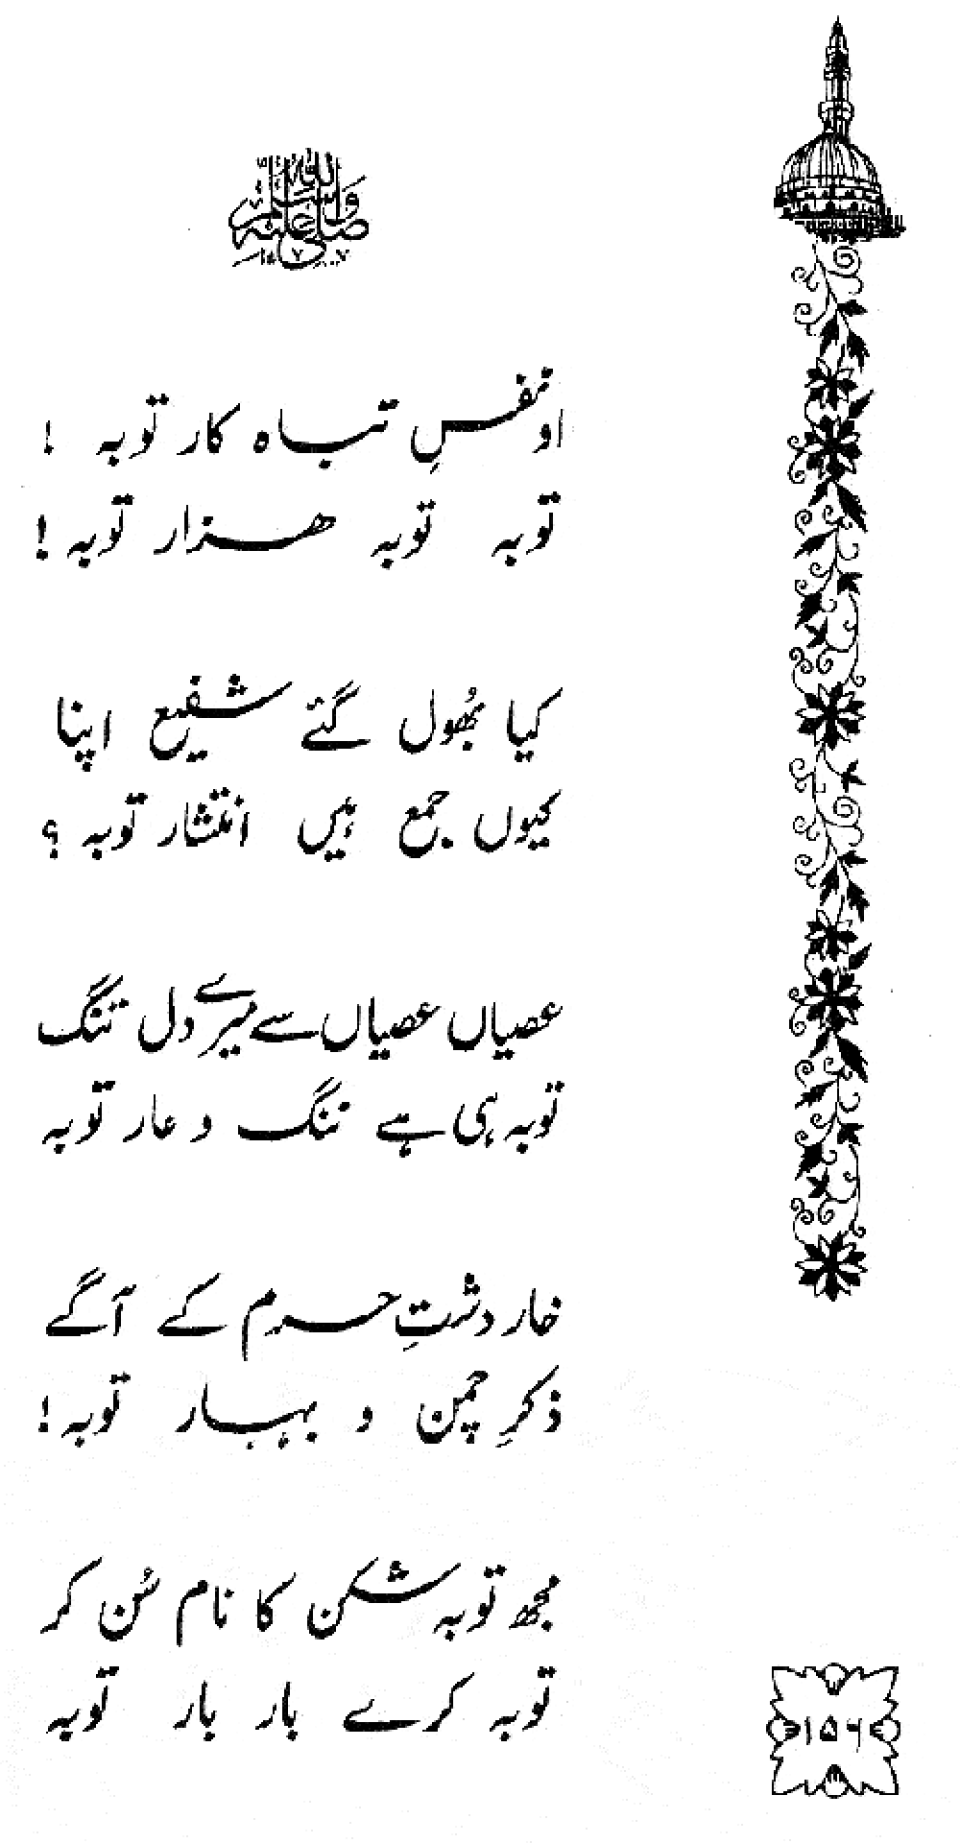 صلی اللہ علیہ وسلم
او نفسِ تباہ کار توبہ !
توبہ توبہ ھزار توبہ !
کیا بھُول گئے شفیع اپنا
کیوں جمع ہیں انتشار توبہ ؟
عصیاں عصیاں سے میرے دل تنگ
توبہ ہی ہے ننگ و عار توبہ
خار دشتِ حرم کے آگے
ذکرِ چمن و بہار توبہ !
مجھ توبہ شکن کا نام سُن کر
توبہ کرے بار بار توبہ
۱۵۶